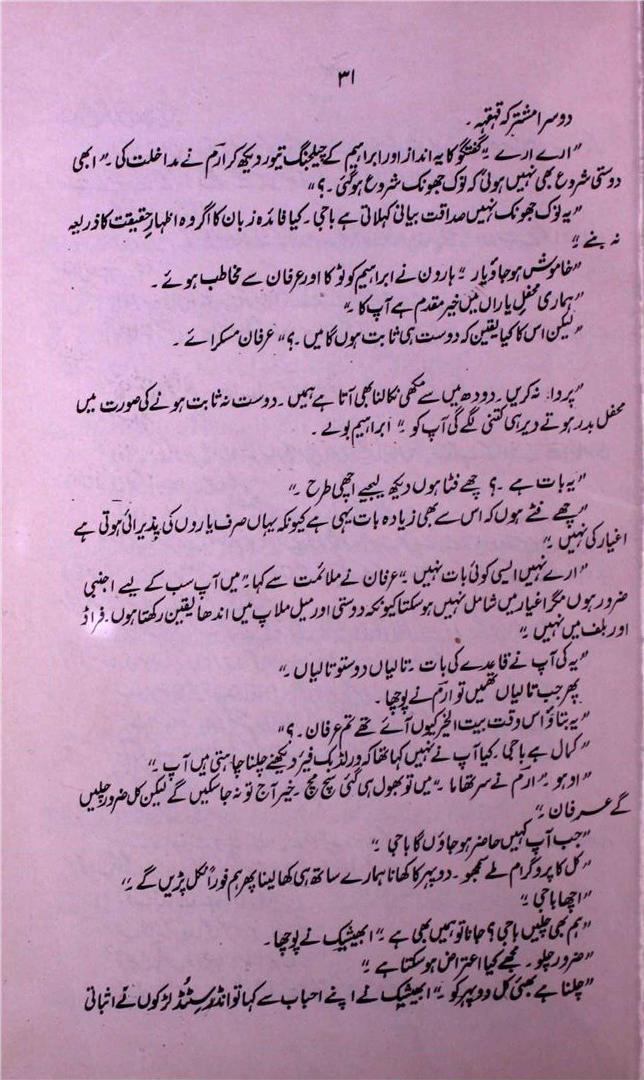 ۳۱
دوسرا مشترکہ قہقہہ ۔
”ارے ارے ۔“ گفتگو کا یہ انداز اور ابراہیم کے چیلنجنگ تیور دیکھ کر ارم نے مداخلت کی ۔” ابھی
دوستی شروع بھی نہیں ہوئی کہ نوک جھونک شروع ہو گئی ۔؟“
”یہ نوک جھونک نہیں صداقت بیانی کہلاتی ہے باجی ۔ کیا فائدہ زبان کا اگر وہ اظہارِ حقیقت کا ذریعہ
نہ بنے ۔“
”خاموش ہو جاؤ یار ۔“ ہارون نے ابراہیم کو ٹوکا اور عرفان سے مخاطب ہوئے ۔
”ہماری محفلِ یاراں میں خیر مقدم ہے آپ کا ۔“
”لیکن اس کا کیا یقین کہ دوست ہی ثابت ہوں گا میں ۔؟“ عرفان مسکرائے ۔
”پروا نہ کریں ۔ دودھ میں سے مکھی نکالنا بھی آتا ہے ہمیں ۔ دوست نہ ثابت ہونے کی صورت میں
محفل بدر ہوتے دیر ہی کتنی لگے گی آپ کو ۔“ ابراہیم بولے ۔
”یہ بات ہے ۔؟ چھے فٹا ہوں دیکھ لیجیے اچھی طرح ۔“
”چھے فٹے ہوں کہ اس سے بھی زیادہ بات یہی ہے کیونکہ یہاں صرف یاروں کی پذیرائی ہوتی ہے
اغیار کی نہیں ۔“
”ارے نہیں ایسی کوئی بات نہیں ۔“ عرفان نے ملائمت سے کہا ۔” میں آپ سب کے لیے اجنبی
ضرور ہوں مگر اغیار میں شامل نہیں ہو سکتا کیونکہ دوستی اور میل ملاپ میں اندھا یقین رکھتا ہوں ۔ فراڈ
اور بلف میں نہیں ۔“
”یہ کی آپ نے قاعدے کی بات ۔ تالیاں دوستو تالیاں ۔“
پھر جب تالیاں تھمیں تو ارم نے پوچھا ۔
”یہ بتاؤ اس وقت بیت الخیر کیوں آئے تھے تم عرفان ۔؟“
”کمال ہے باجی ۔ کیا آپ نے نہیں کہا تھا کہ ورلڈ بک فیئر دیکھنے چلنا چاہتی ہیں آپ ۔“
”اوہو ۔“ ارم نے سر تھاما ۔” میں تو بھول ہی گئی سچ مچ ۔ خیر آج تو نہ جا سکیں گے لیکن کل ضرور چلیں
گے عرفان ۔“
”جب آپ کہیں حاضر ہو جاؤں گا باجی ۔“
”کل کا پروگرام طے سمجھو ۔ دوپہر کا کھانا ہمارے ساتھ ہی کھا لینا پھر ہم فوراً نکل پڑیں گے ۔“
”اچھا باجی ۔“
”ہم بھی چلیں باجی ؟ جانا تو ہمیں بھی ہے ۔“ ابھیشیک نے پوچھا ۔
”ضرور چلو ۔ مجھے کیا اعتراض ہو سکتا ہے ۔“
”چلنا ہے بھئی کل دوپہر کو ۔“ ابھیشیک نے اپنے احباب سے کہا تو انٹرسٹڈ لڑکوں نے اثباتی